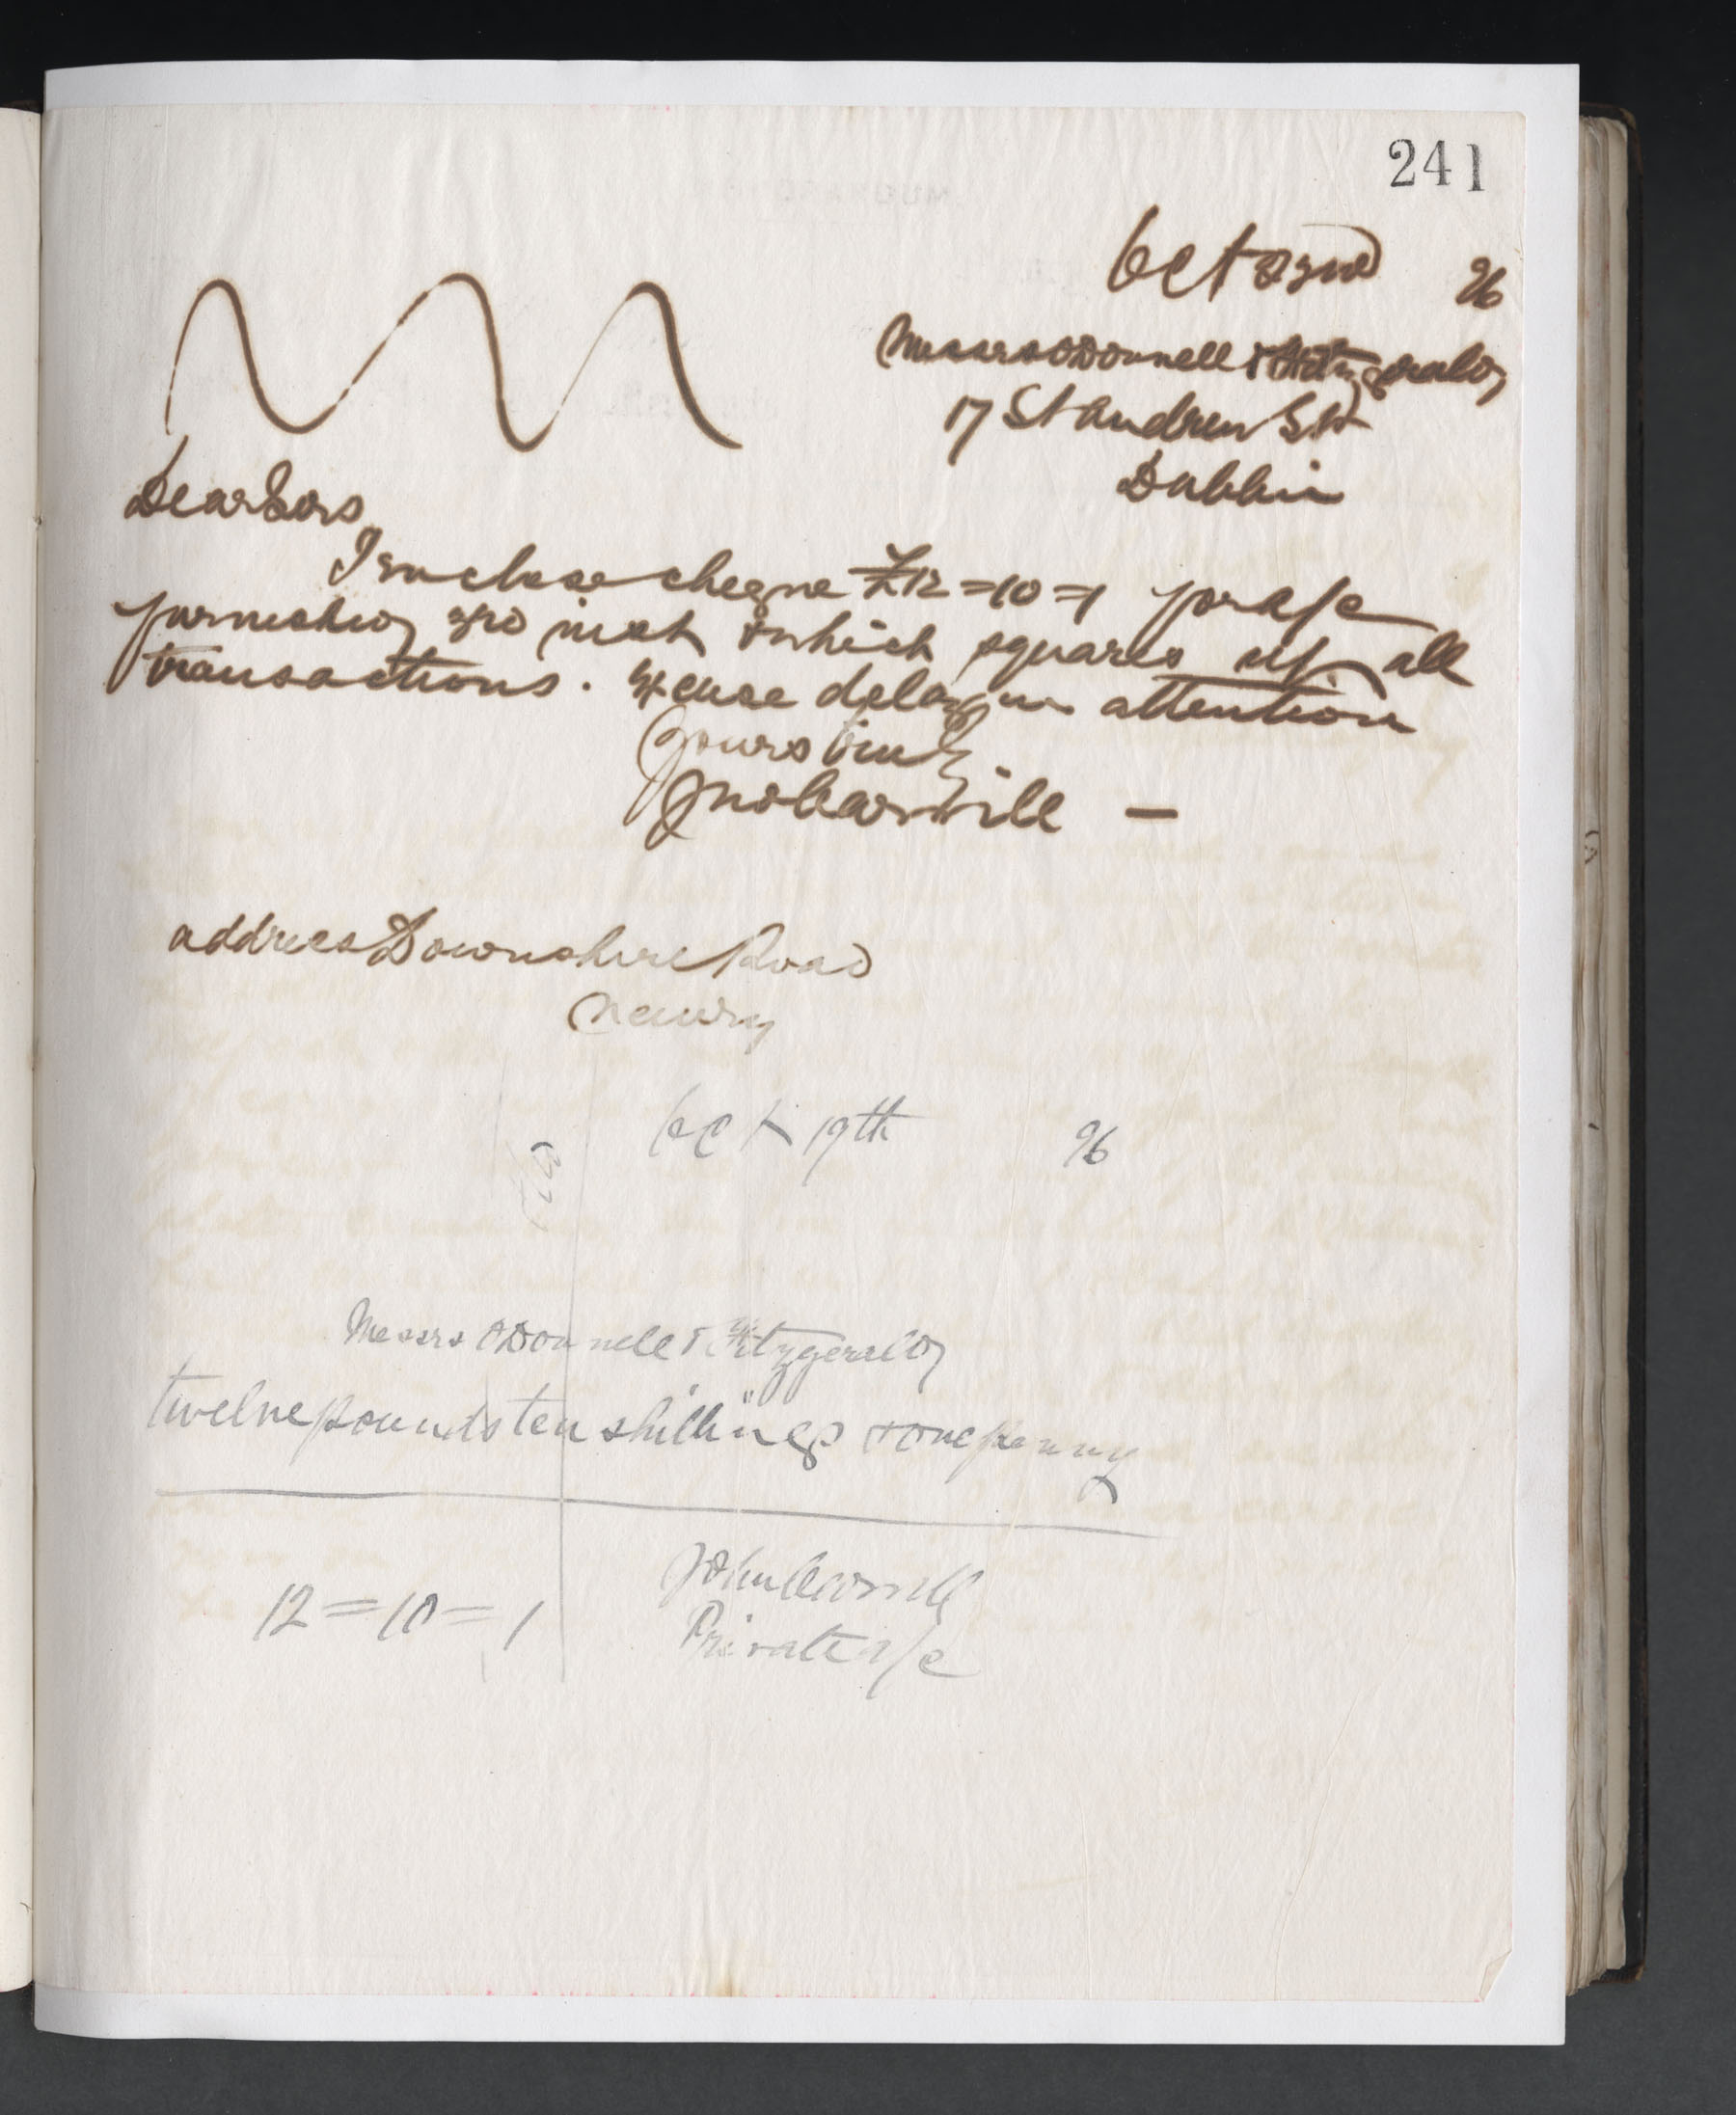 241
Oct 23rd 96
Messrs O'Donnell & Fitzgerald
17 St Andrew St
Dublin
Dear Sirs
I enclose cheque £12=10=1 for a/c
furnished 3rd inst & which squares up all
transactions. Excuse delay in attention
Yours truly
Jno Carvill —
address Downshire Road
Newry
Oct 19th 96
Messrs O'Donnell & Fitzgerald
twelve pounds ten shillings & one penny
12=10=1
John Carvill
Private a/c